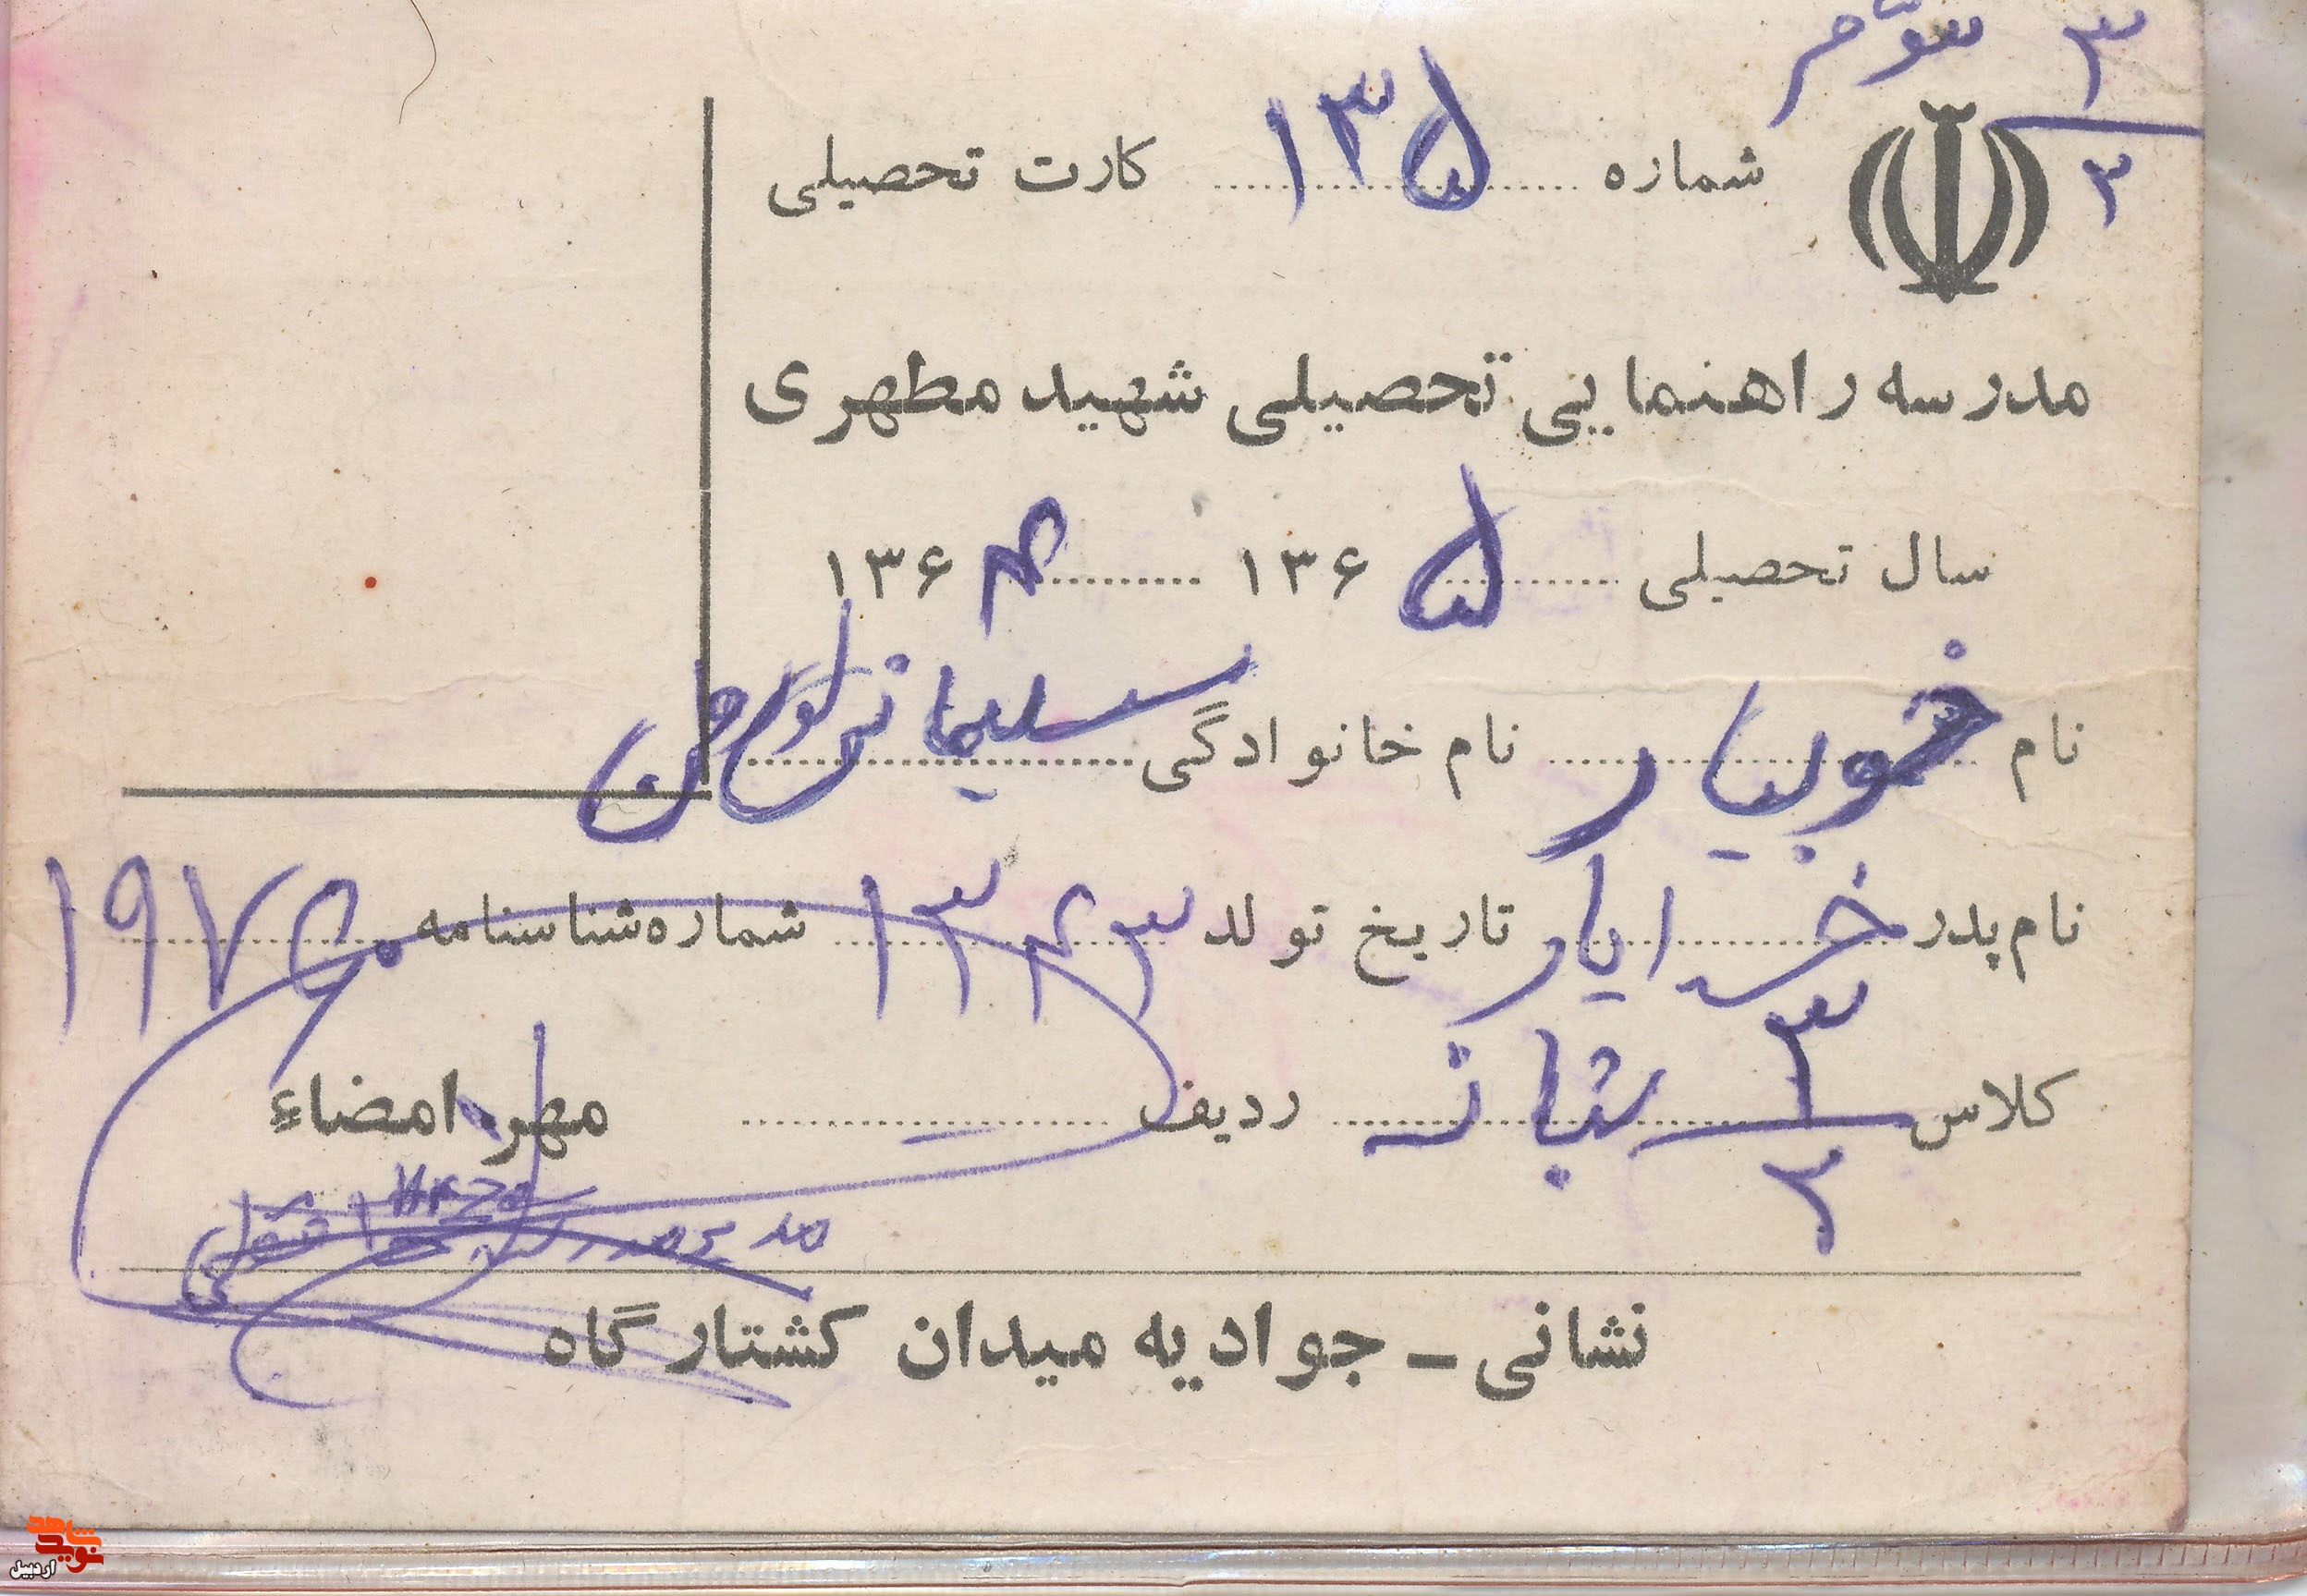 سوّم ۳/۳
شماره ۱۳۵ کارت تحصیلی
مدرسه راهنمایی تحصیلی شهید مطهری
سال تحصیلی ۱۳۶۵ ۱۳۶۴
نام خوبیار نام خانوادگی سلیمانی
نام پدر خدایار تاریخ تولد ۱۳۴۳ شماره شناسنامه ۱۹۷۶
کلاس ۳/۳ شبانه ردیف مهر امضاء
مدیر مدرسه
نشانی ـ جوادیه میدان کشتارگاه
نوید شاهد
اردبیل